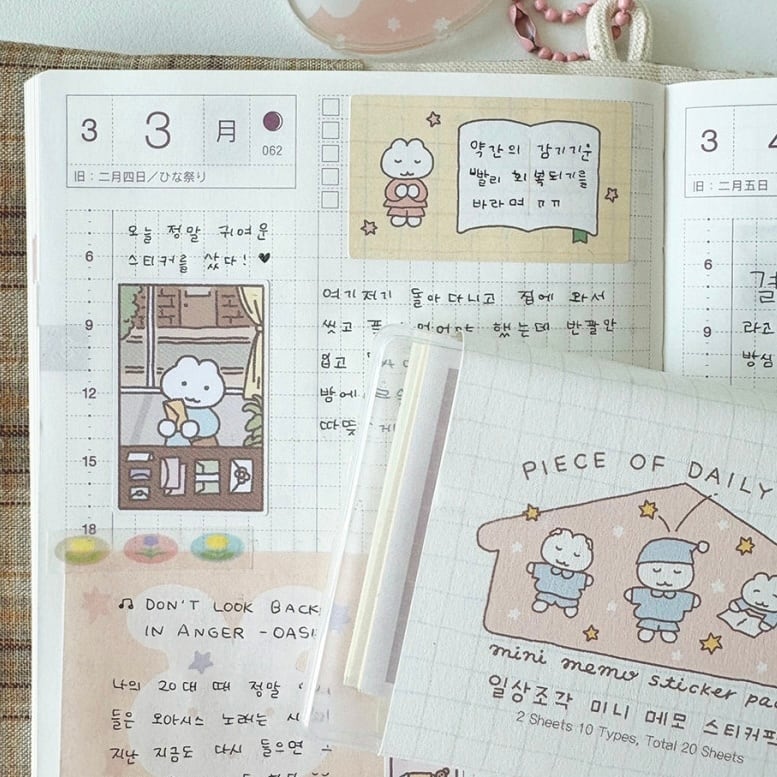 3 3 月
062
旧：二月四日／ひな祭り
약간의 감기기운
빨리 회복되기를
바라며 ㄲㄲ
오늘 정말 귀여운
스티커를 샀다! ♥
6
9
12
15
18
여기저기 돌아다니고 집에 와서
씻고 했는데 반팔만
입고
밤에
♫ DON'T LOOK BACK
IN ANGER - OASIS
나의 20대 때 정말
들은 오아시스 노래는
지난 지금도 다시 들으면
3
旧：二月五日
6
9
라고
방심
PIECE OF DAILY
mini memo sticker pad
일상조각 미니 메모 스티커
2 Sheets 10 Types, Total 20 Sheets